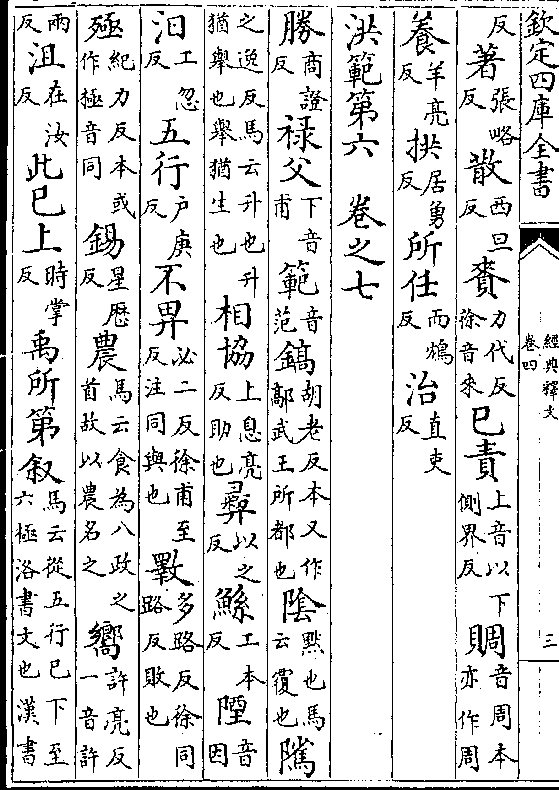 欽定四庫全書
經典釋文
卷四
三
反著張略反散西旦反賚力代反徐音來已責上音以下側界反賙音周本亦作周
養羊亮反拱居勇反所任而鴆反治直吏反
洪範第六 卷之七
勝商證反祿父下音甫範音范鎬胡老反本又作鄗武王所都也隂黙也馬云覆也隲
之逸反馬云升也升猶舉也舉猶生也相協上息亮反助也彛以之反鯀工本反陻音因
汩工忽反五行戶庚反不畀必二反徐甫至反注同與也斁多路反徐同路反敗也
殛紀力反本或作極音同錫星歷反農馬云食為八政之首故以農名之嚮許亮反一音許
兩反沮在汝反此已上時掌反禹所第叙馬云從五行已下至六極洛書文也漢書